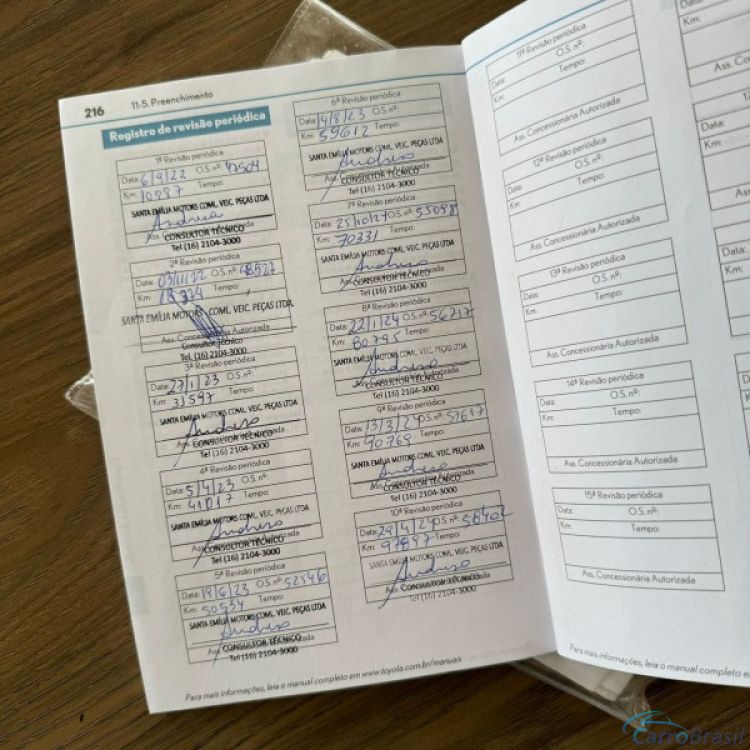 216
11-5. Preenchimento
Registro de revisão periódica
1ª Revisão periódica
Data: 6/9/22 O.S. nº: 47504
Km: 10997 Tempo:
SANTA EMÍLIA MOTORS COML. VEIC. PEÇAS LTDA
Andreso
CONSULTOR TÉCNICO
Tel (16) 2104-3000
2ª Revisão periódica
Data: 03/11/22 O.S. nº: 48527
Km:
SANTA EMÍLIA MOTORS COML. VEIC. PEÇAS LTDA.
Ass. Concessionária Autorizada
Consultor Técnico
Tel. (16) 2104-3000
3ª Revisão periódica
Data: 27/1/23 O.S. nº:
Km: 31597 Tempo:
SANTA EMÍLIA MOTORS COML. VEIC. PEÇAS LTDA
Andreso
CONSULTOR TÉCNICO
Tel (16) 2104-3000
4ª Revisão periódica
Data: 5/4/23 O.S. nº:
Km: 41017 Tempo:
SANTA EMÍLIA MOTORS COML. VEIC. PEÇAS LTDA
Andreso
CONSULTOR TÉCNICO
Tel (16) 2104-3000
5ª Revisão periódica
Data: 19/6/23 O.S. nº: 52546
Km: 50534 Tempo:
SANTA EMÍLIA MOTORS COML. VEIC. PEÇAS LTDA
Andreso
CONSULTOR TÉCNICO
Tel (16) 2104-3000
6ª Revisão periódica
Data: 14/8/23 O.S. nº:
Km: 59612 Tempo:
SANTA EMÍLIA MOTORS COML. VEIC. PEÇAS LTDA
Andreso
CONSULTOR TÉCNICO
Tel (16) 2104-3000
7ª Revisão periódica
Data: 25/10/24 O.S. nº: 55098
Km: 70331 Tempo:
SANTA EMÍLIA MOTORS COML. VEIC. PEÇAS LTDA
Andreso
CONSULTOR TÉCNICO
Tel (16) 2104-3000
8ª Revisão periódica
Data: 22/1/24 O.S. nº: 56717
Km: 80795 Tempo:
SANTA EMÍLIA MOTORS COML. VEIC. PEÇAS LTDA
Andreso
CONSULTOR TÉCNICO
Tel (16) 2104-3000
9ª Revisão periódica
Data: 13/3/24 O.S. nº:
Km: 90769 Tempo:
SANTA EMÍLIA MOTORS COML. VEIC. PEÇAS LTDA
Andreso
CONSULTOR TÉCNICO
Tel (16) 2104-3000
10ª Revisão periódica
Data: 29/4/24 O.S. nº: 58402
Km: 97897 Tempo:
SANTA EMÍLIA MOTORS COML. VEIC. PEÇAS LTDA
Andreso
CONSULTOR TÉCNICO
Tel (16) 2104-3000
Para mais informações, leia o manual completo em www.toyota.com.br/manuais
11ª Revisão periódica
Data: O.S. nº:
Km: Tempo:
Ass. Concessionária Autorizada
12ª Revisão periódica
Data: O.S. nº:
Km: Tempo:
Ass. Concessionária Autorizada
13ª Revisão periódica
Data: O.S. nº:
Km: Tempo:
Ass. Concessionária Autorizada
14ª Revisão periódica
Data: O.S. nº:
Km: Tempo:
Ass. Concessionária Autorizada
15ª Revisão periódica
Data: O.S. nº:
Km: Tempo:
Ass. Concessionária Autorizada
Para mais informações, leia o manual completo
Km:
Data:
Km:
Data:
Km:
CarroBrasil